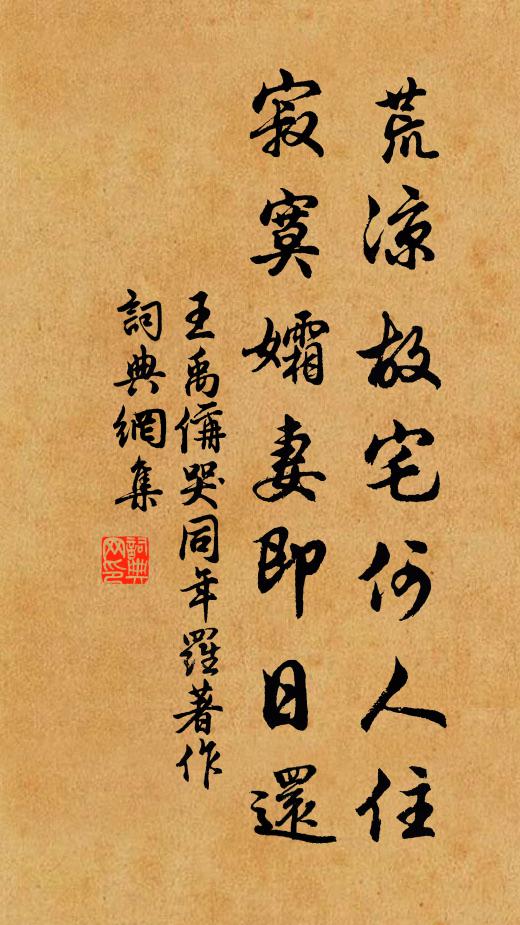 荒凉故宅何人住
寂寞孀妻即日還
王禹偁哭同年羅著作
詞典網集
詞典
网印